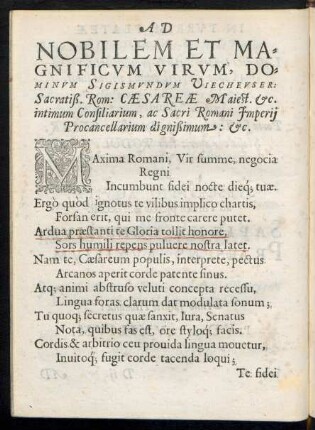 AD
NOBILEM ET MA-
GNIFICVM VIRVM, DO-
MINVM SIGISMVNDVM VIECHEVSER:
Sacratiß. Rom: CÆSAREÆ Maiest. &c.
intimum Consiliarium, ac Sacri Romani Imperij
Procancellarium dignißimum: &c.
MAxima Romani, Vir summe, negocia
Regni
Incumbunt fidei nocte dieq; tuæ.
Ergò quòd ignotus te vilibus implico chartis,
Forsan erit, qui me fronte carere putet.
Ardua præstanti te Gloria tollit honore,
Sors humili repens puluere nostra latet.
Nam te, Cæsareum populis, interprete, pectus
Arcanos aperit corde patente sinus.
Atq; animi abstruso veluti concepta recessu,
Lingua foras clarum dat modulata sonum;
Tu quoq; secretus quæ sanxit, Iura, Senatus
Nota, quibus fas est, ore styloq; facis.
Cordis & arbitrio ceu prouida lingua mouetur,
Inuitoq; fugit corde tacenda loqui;
Te fidei